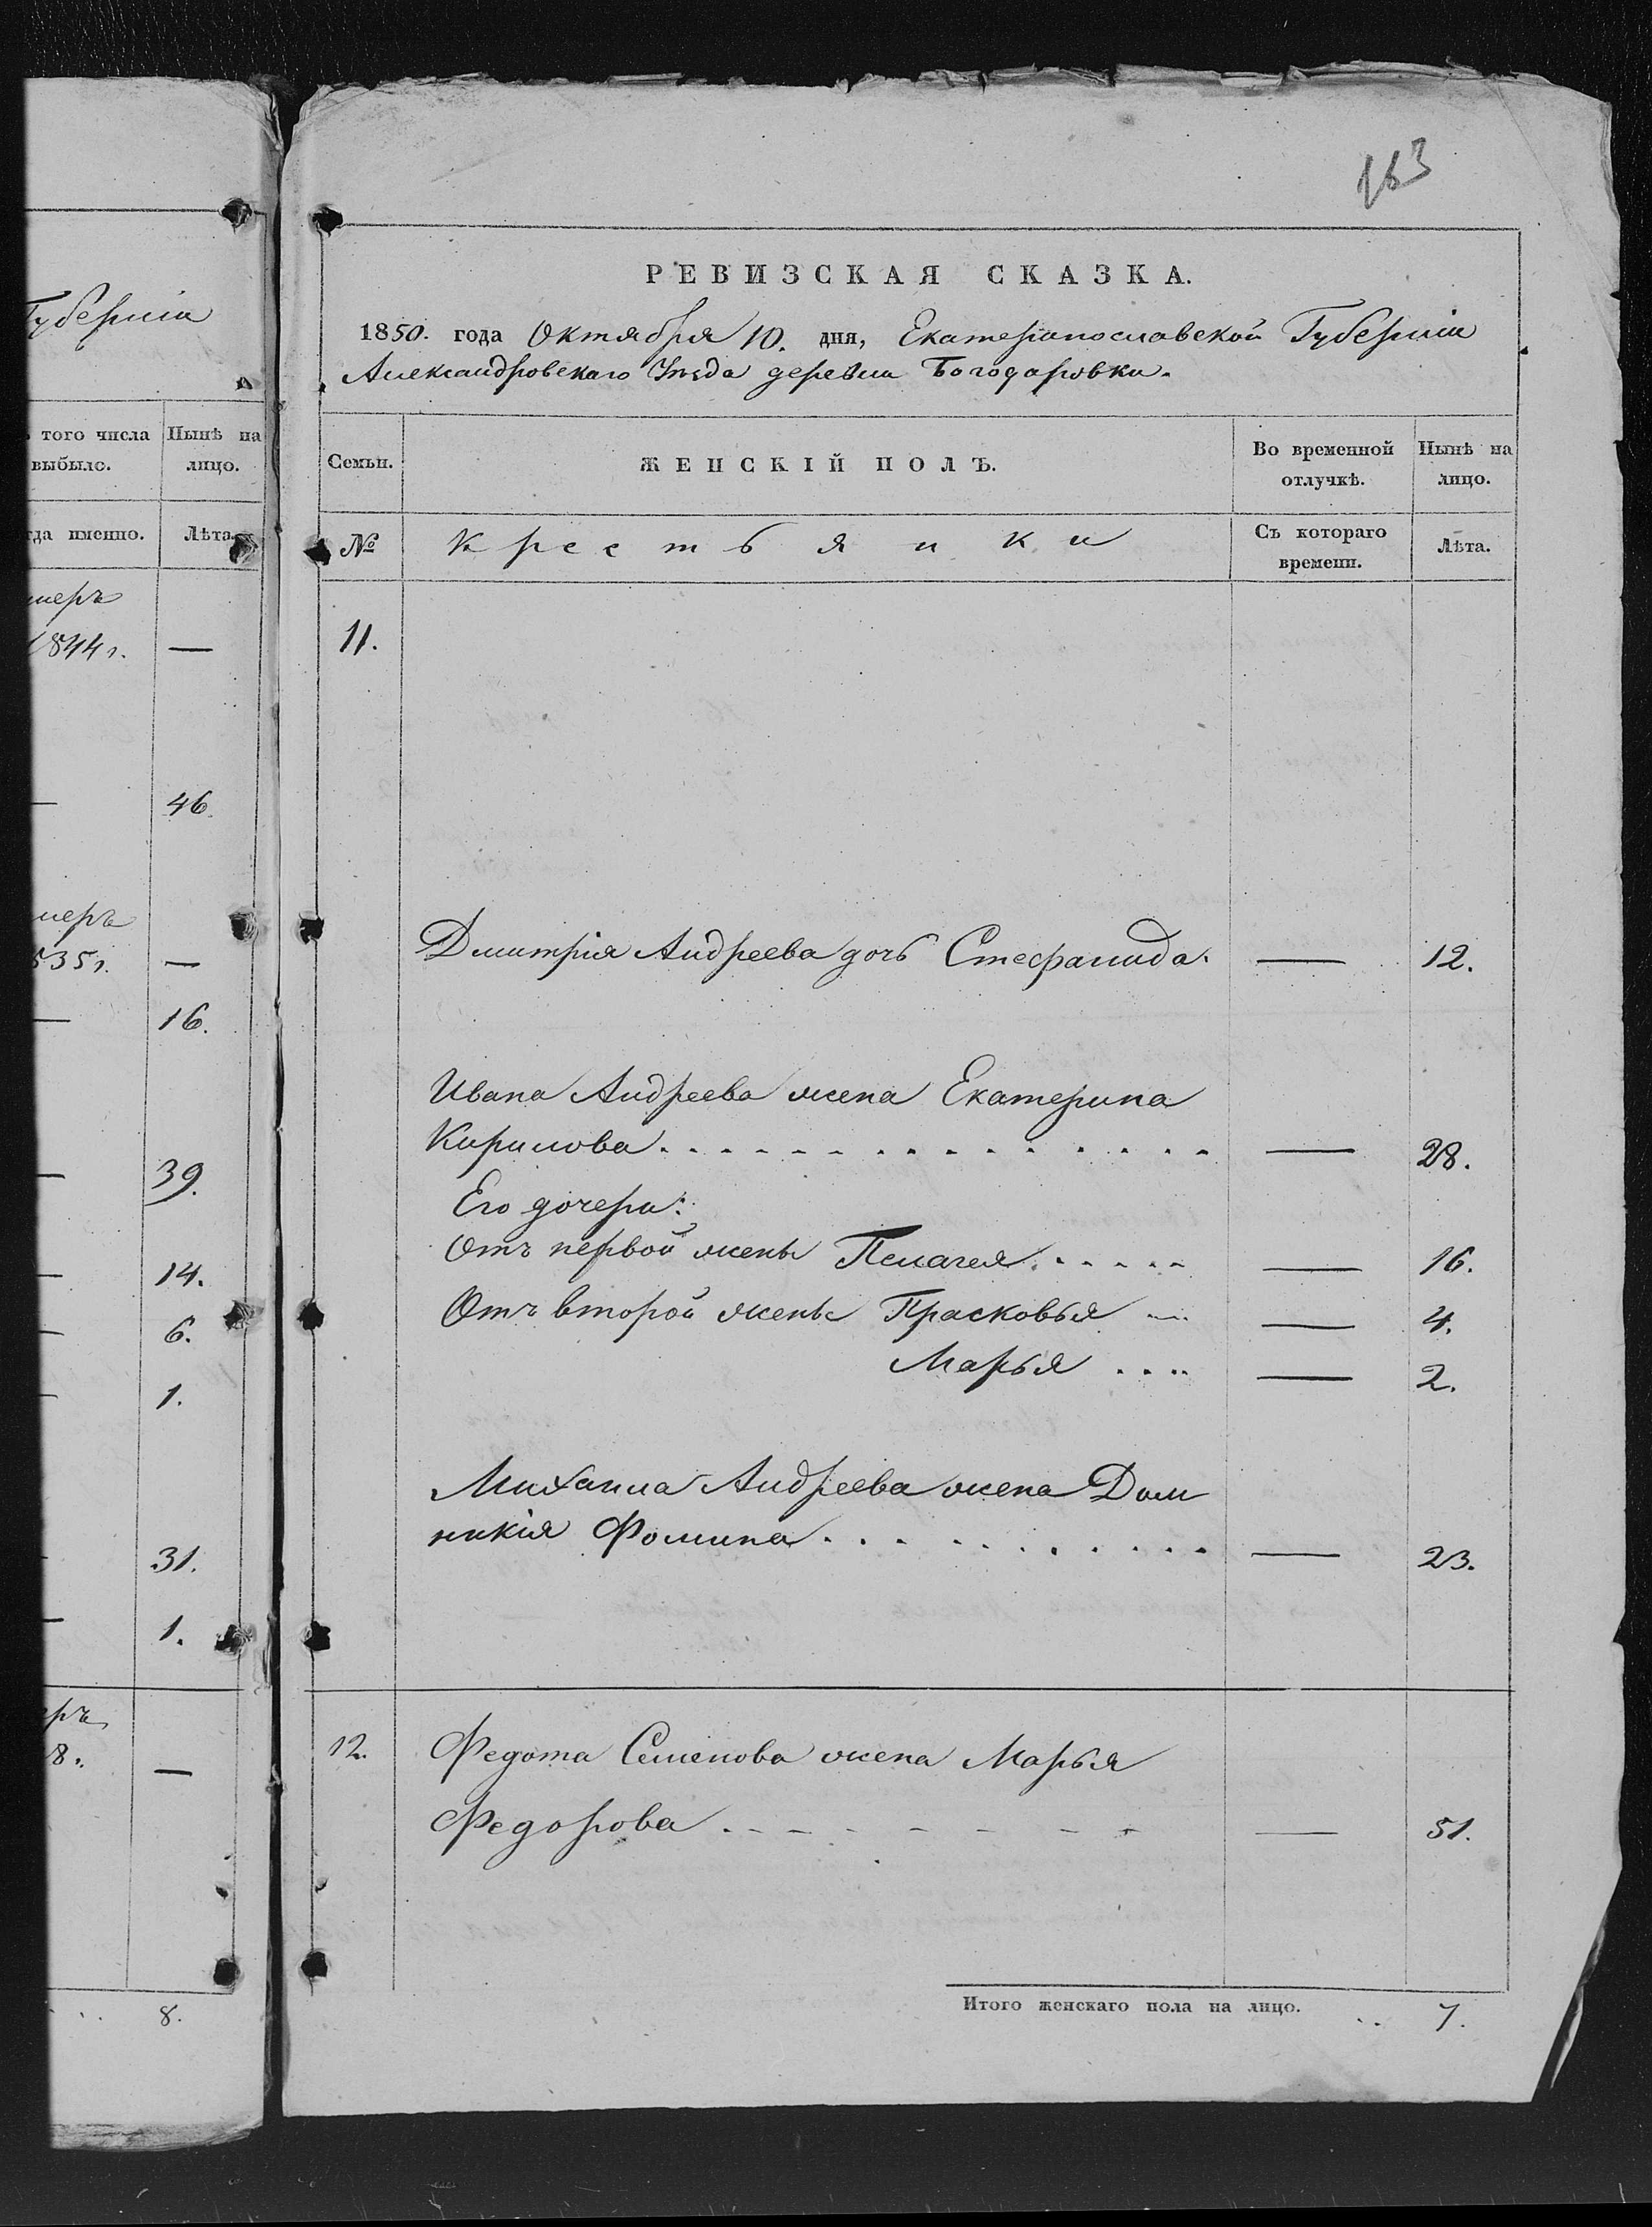 Губернія
того числа Нынѣ на
выбыло. лицо.
именно. Лѣта.
1844 г. —
46
— 
16.
39.
14.
6.
1.
31.
1.
—
8.
163
РЕВИЗСКАЯ СКАЗКА.
1850. года Октября 10. дня, Екатеринославской Губерніи
Александровскаго Уѣзда деревни Богодаровки.
Семьи. ЖЕНСКІЙ ПОЛЪ. Во временной Нынѣ на
отлучкѣ. лицо.
№ Крестьянки Съ котораго Лѣта.
времени.
11.
Дмитрія Андреева дочь Стефанида. — 12.
Ивана Андреева жена Екатерина
Кирилова . . . . — 28.
Его дочери:
Отъ первой жены Пелагея . . . . — 16.
Отъ второй жены Прасковья ... — 4.
Марья .... — 2.
Михаила Андреева жена Дом
никія Фомина . . . . — 23.
12. Федота Семенова жена Марья
Федорова . . . . — 51.
Итого женскаго пола на лицо. .. 7.